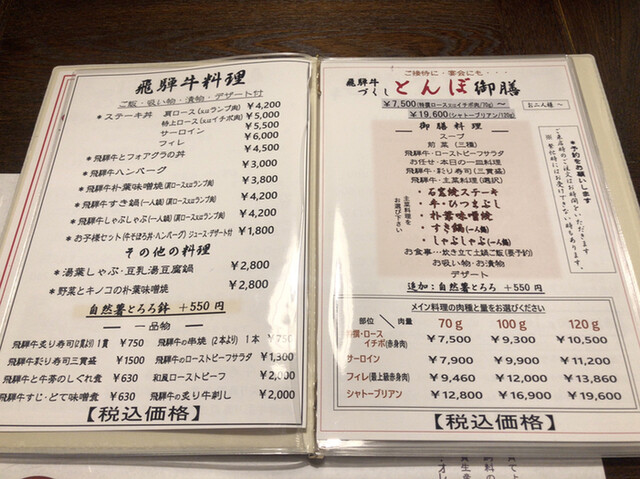 飛騨牛料理
ご飯・吸い物・漬物・デザート付
＊ステーキ丼 肩ロース(又はランプ肉) ￥4,200
特上ロース(又はイチボ肉) ￥5,000
サーロイン ￥5,500
フィレ ￥6,000
＊飛騨牛とフォアグラの丼 ￥4,500
＊飛騨牛ハンバーグ ￥3,000
＊飛騨牛朴葉味噌焼(肩ロース又はランプ肉) ￥3,800
＊飛騨牛すき鍋(一人鍋)(肩ロース又はランプ肉) ￥4,200
＊飛騨牛しゃぶしゃぶ(一人鍋)(肩ロース又はランプ肉) ￥4,200
＊お子様セット(牛そぼろ丼・ハンバーグ)ジュース・デザート付 ￥1,800
その他の料理
＊湯葉しゃぶ・豆乳湯豆腐鍋 ￥2,800
＊野菜とキノコの朴葉味噌焼 ￥2,800
自然薯とろろ鉢 +550円
一品物
飛騨牛炙り寿司(2貫より) 1貫 ￥750 飛騨牛の串焼(2本より) 1本 ￥750
飛騨牛彩り寿司三貫盛 ￥1500 飛騨牛のローストビーフサラダ ￥1,300
飛騨牛と牛蒡のしぐれ煮 ￥630 和風ローストビーフ ￥2,000
飛騨牛すじ・どて味噌煮 ￥630 飛騨牛の炙り牛刺し ￥2,000
【税込価格】
ご接待に・宴会にも・・・
飛騨牛づくし とんぼ御膳
￥7,500(特撰ロース又はイチボ肉/70g) ～
￥19,600(シャトーブリアン/120g)
お二人様～
御膳料理
スープ
前菜(三種)
飛騨牛・ローストビーフサラダ
お任せ・本日の一皿料理
飛騨牛・彩り寿司(三貫盛)
飛騨牛・主菜料理(選択)
主菜料理を
お選び下さい
・石窯焼ステーキ
・牛・ひつまぶし
・朴葉味噌焼
・すき鍋(一人鍋)
・しゃぶしゃぶ(一人鍋)
お食事…炊き立て土鍋ご飯(要予約)
お吸い物・お漬物
デザート
追加：自然薯とろろ +550円
＊予約をお願いします
ご来店時のご注文はお時間をいただきます
※繁忙時にはお受けできない時もあります。
メイン料理の肉種と量をお選びください
部位／肉量 70g 100g 120g
特撰・ロース
イチボ(赤身肉) ￥7,500 ￥9,300 ￥10,500
サーロイン ￥7,900 ￥9,900 ￥11,200
フィレ(最上級赤身肉) ￥9,460 ￥12,000 ￥13,860
シャトーブリアン ￥12,800 ￥16,900 ￥19,600
【税込価格】